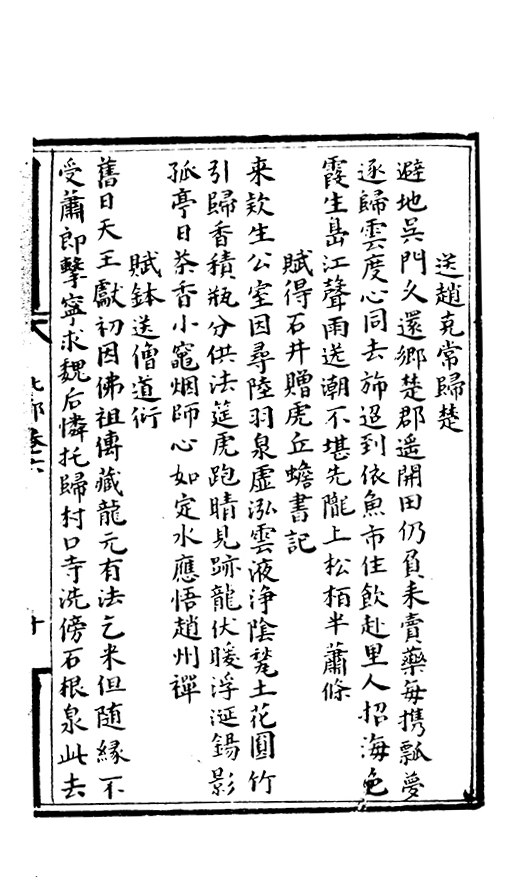 送趙克常歸楚
避地吳門久還鄉楚郡遥開田仍負耒賣藥每携瓢夢
逐歸雲度心同去斾迢到依魚市住飲赴里人招海色
霞生島江聲雨送潮不堪先隴上松栢半蕭條
賦得石井贈虎丘蟾書記
来欵生公室因尋陸羽泉虚泓雲液浄陰甃土花圓竹
引歸香積瓶分供法筵虎跑晴見跡龍伏暖浮涎錫影
孤亭日茶香小竈烟師心如定水應悟趙州禪
賦鉢送僧道衍
舊日天王獻初因佛祖傳藏龍元有法乞米但随緣不
受蕭郎擊寧求魏后憐托歸村口寺洗傍石根泉此去
北郭 卷六
十